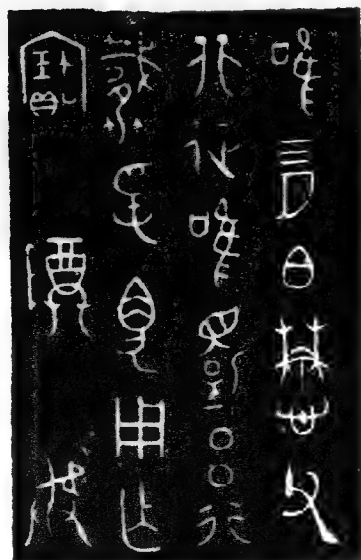 唯四月白懋父
北征唯還呂行
捷孚貝用乍
寶尊彝